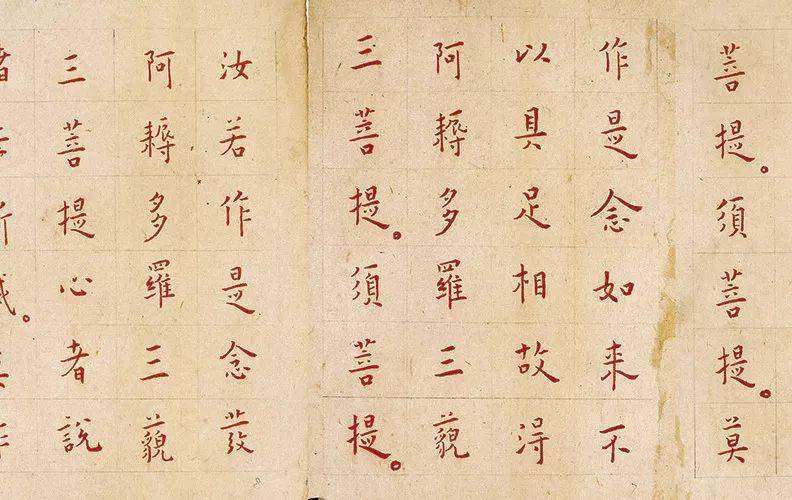 菩提。須菩提。莫
作是念如来不
以具足相故得
阿耨多羅三藐
三菩提。須菩提。
汝若作是念發
阿耨多羅三藐
三菩提心者說